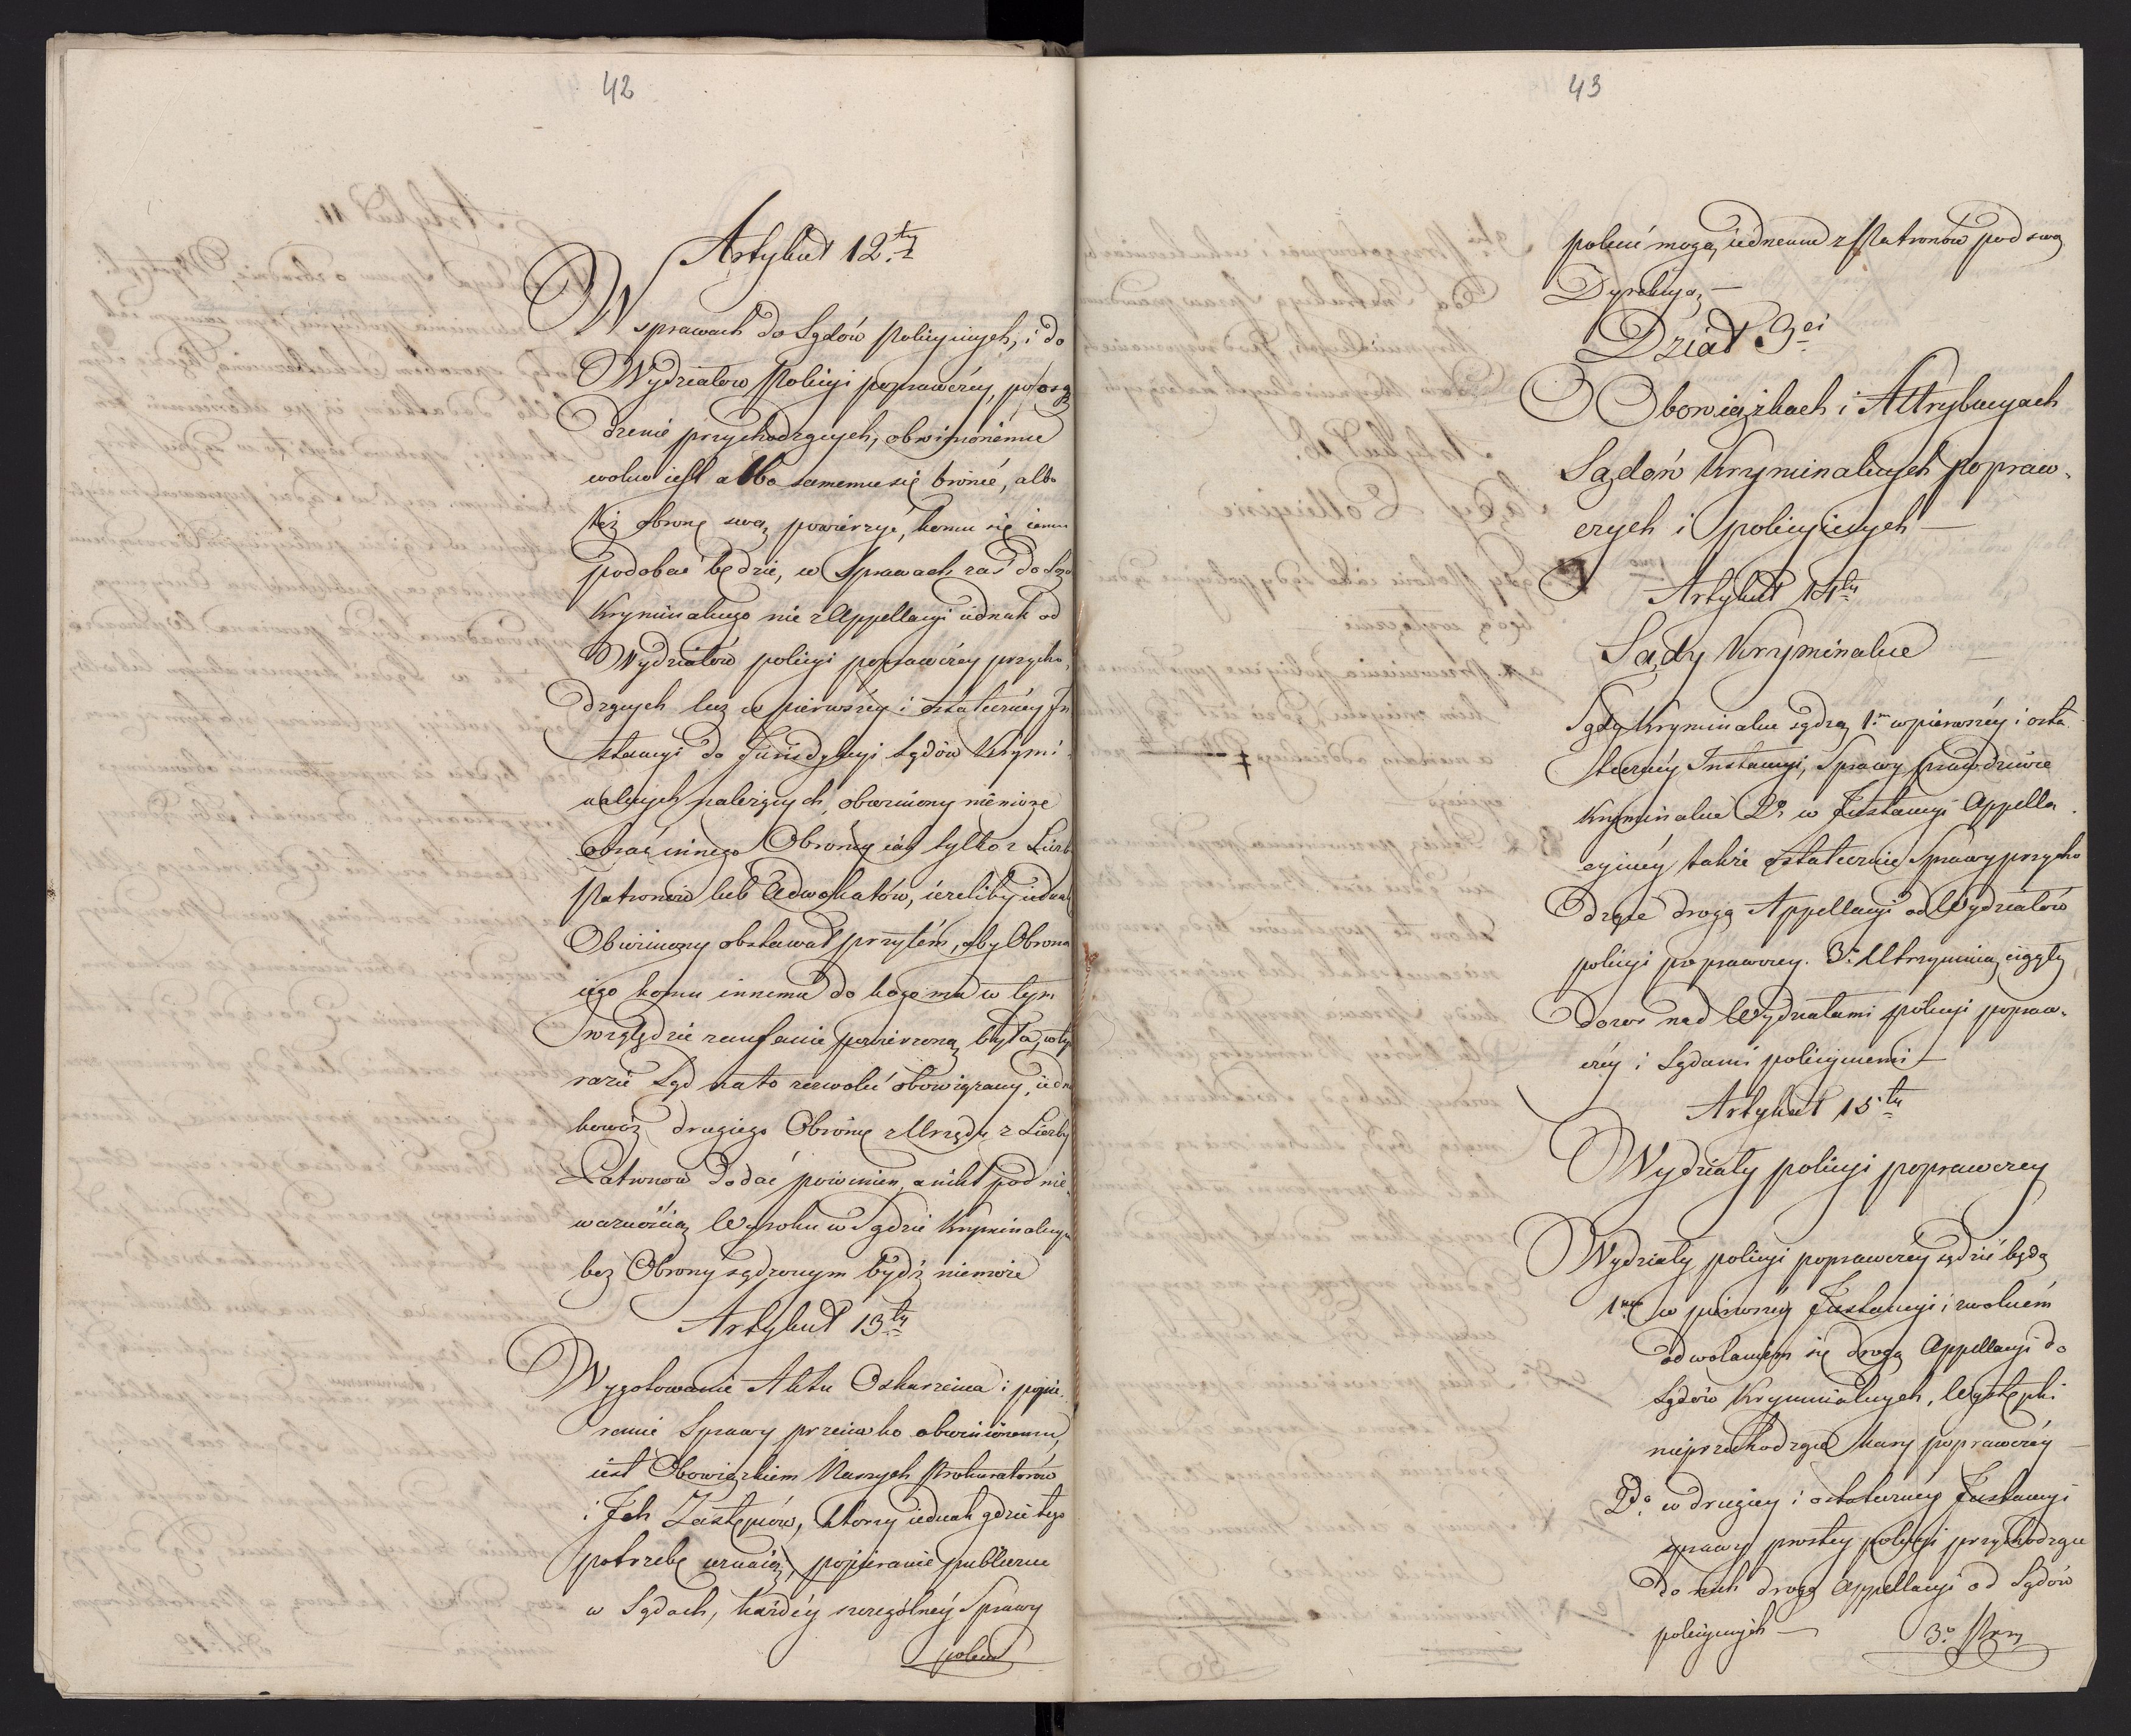 42
Artykuł 12.ty
W sprawach do Sądów Policyinych, i do
Wydziałow Policyi poprawczéy, po osą
dzenie przychodzących, obwinionemu
wolno iest albo samemu się bronić, albo
też obronę swą powierzyć, komu się iemu
podobać będzie, w Sprawach zas do Są
Kryminalnego nie z Appellacyi iednak od
Wydziałów policyi poprawczey przycho,
dzących lecz w pierwszéy i ostateczney In
stancyi do Jurisdykcyi Sądów Krymi
nalnych należących, obwiniony niemoże
obrać innego Obrońcy iak tylko z Liczb
Patronów lub Adwokatów, iezeliby iednak
Obwiniony obstawał przytém, aby Obrona
iego komu innemu do kogo ma w tym
względzie zaufanie powierzoną była, w ty
razie Sąd na to zezwolić obowiązany, iedn
kowóż drugiego Obrońcę z Urzędu z Liczby
Patronów dodać powinien, a nikt pod nie,
ważnością Wyroku w Sądzie Kryminalnym
bez Obrony sądzonym bydź niemoże
Artykuł 13.ty
Wygotowanie Aktu Oskarzenia i popie.
ranie Sprawy przeciwko obwinionemu,
iest Obowiązkiem Naszych Prokuratorów
i Ich Zastępców, którzy iednak gdzie tego
potrzebę uznaią, popieranie publiczne
w Sądach, każdéy szczególnéy Sprawy
polecić
43
polecić mogą iednemu z Patronów pod swą
Dyrekcyą —
Dział 3ci
O Obowiązkach i Attrybucyach
Sądów Kryminalnych popraw.
czych i policyinych —
Artykuł 14ty
Sądy Kryminalne —
Sądy Kryminalne sądzą 1.o w pierwszéy i osta
teczney Instancyi, Sprawy prawdziwie
Kryminalne 2.o w Instancyi Appella
cyinéy także ostatecznie Sprawy przycho
dzące drogą Appellacyi od Wydziałów
policyi poprawczey. 3.o Utrzymuią ciągły
dozor nad Wydziałami policyi popraw.
czéy i Sądami policyinemi —
Artykuł 15ty
Wydziały policyi poprawczey
Wydziały policyi poprawczéy sądzić będą
1mo w pierwszéy Instancyi i z wolném
odwołaniem się drogą Appellacyi do
Sądów Kryminalnych, Występki
nieprzechodzące kary poprawczéy —
2do w drugiey i ostateczney Instancyi
sprawy prostey policyi przychodzące
do nich drogą Appellacyi od Sądów
policyinych —
3o Przy